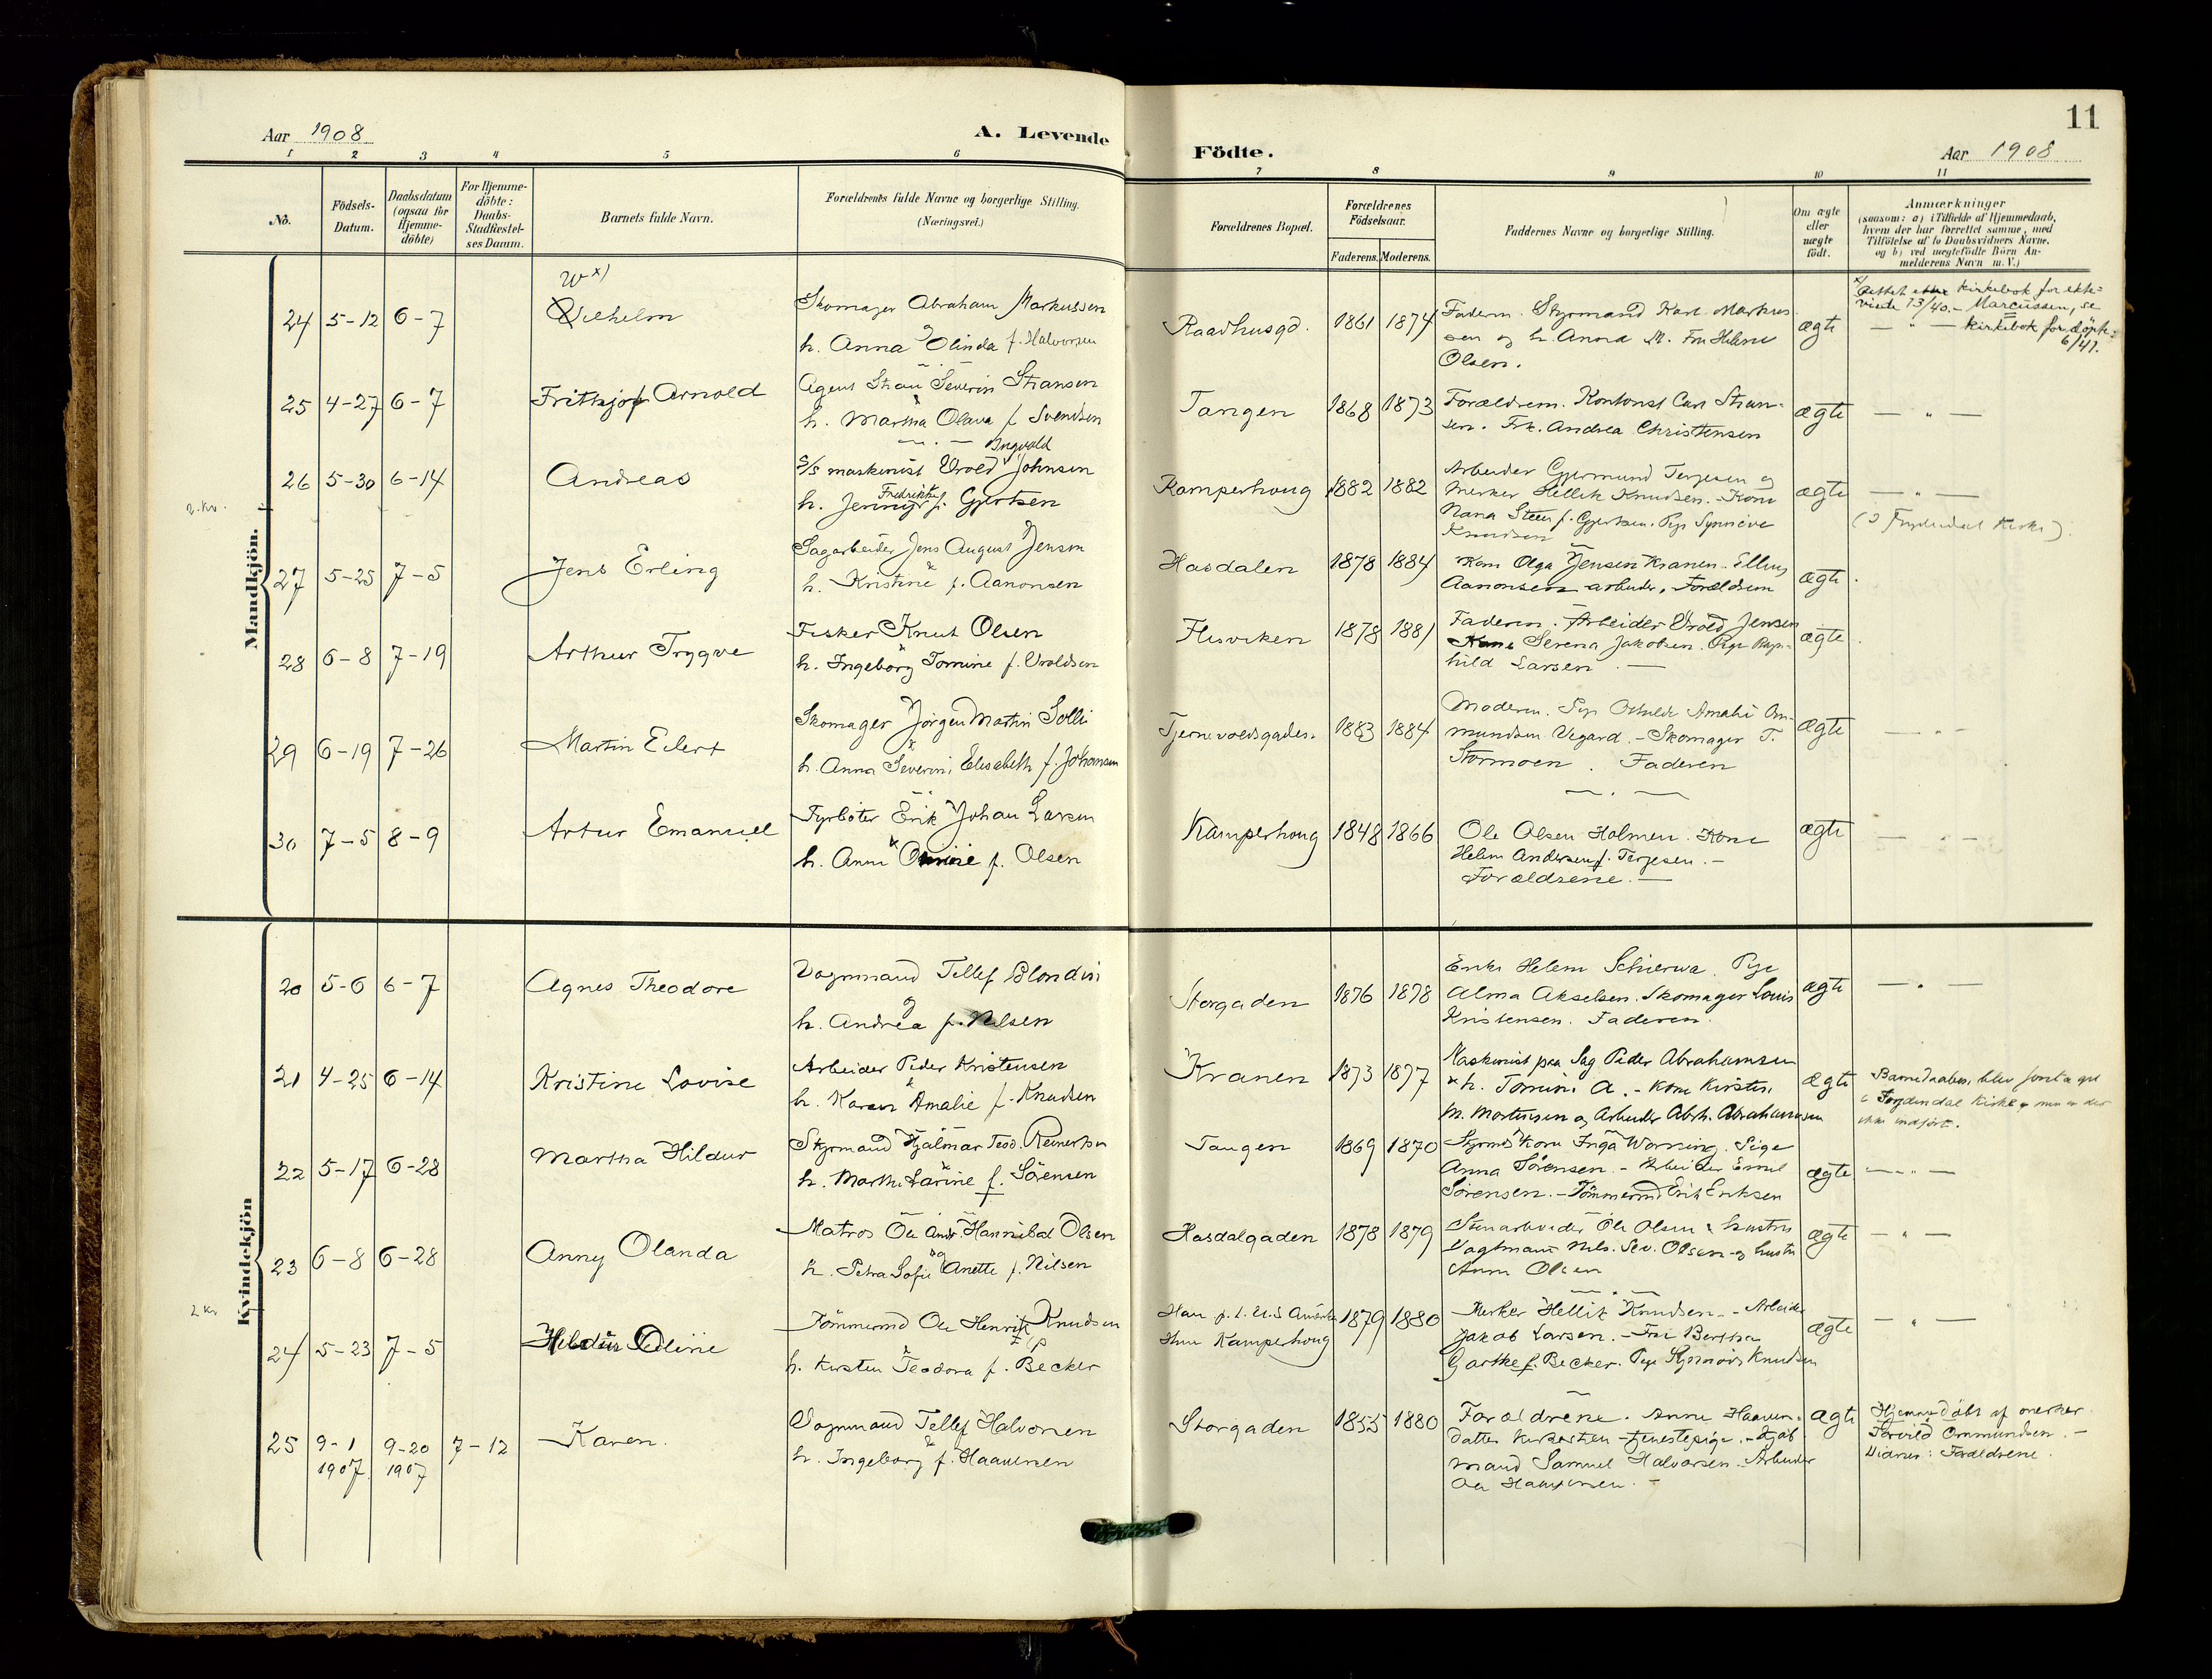 11
Aar 1908
A. Levende
Födte.
Aar 1908
1 2 3 4 5 6 7 8 9 10 11
No.
Födsels-
Datum.
Daabsdatum
(ogsaa for
Hjemme-
döbte)
For Hjemme-
döbte:
Daabs-
Stadfæstel-
ses Datum.
Barnets fulde Navn.
Forældrenes fulde Navne og borgerlige Stilling.
(Næringsvei.)
Forældrenes Bopæl.
Forældrenes
Födselsaar.
Faderens. Moderens.
Faddernes Navne og borgerlige Stilling.
Om ægte
eller
uægte
födt.
Anmærkninger
(saasom: a) i Tilfælde af Hjemmedaab,
hvem der har forrettet samme, med
Tilföielse af to Daabsvidners Navne.
og b) ved uægtefödte Börn An-
melderens Navn m. V.)
Mandkjön.
W x)
24 5-12 6-7
Vilhelm
Skomager Abraham Markussen
h. Anna Olinda f. Halvorsen
Raadhusgd.
1861 1874
Faderen. Styrmand Karl Markus-
sen og h. Anna M. Fru Helene
Olsen.
ægte
x) Rettet kirkebok for ekte-
viede 13/40. - Marcussen, se
— " — kirkebok for döpte
6/41.
25 4-27 6-7
Frithjof Arnold
Agent Severin Stransen
h. Martha Olava f. Svendsen
Tangen
1868 1873
Forældrene. Kontorist Carl Stran-
sen. Frk. Andrea Christensen
ægte
— " —
2 kr.
26 5-30 6-14
Andreas
Ingvald
S/S maskinist Vrold Johnsen
Fredrikke
h. Jenny f. Gjertsen
Kamperhoug
1882 1882
Arbeider Gjermund Terjesen og
Merker Hellik Knudsen. - Kone
Nana Steen f. Gjertsen. Pige Synnöve
Knudsen
ægte
— " —
27 5-25 7-5
Jens Erling
Sagarbeider Jens August Jensen
h. Kristine f. Aanonsen
Hasdalen
1878 1884
Kone Olga Jensen Kranen. Elling
Aanonsen arbeider. Forældrene
ægte
28 6-8 7-19
Arthur Trygve
Fisker Knut Olsen
h. Ingeborg Tomine f. Vroldsen
Flisviken
1878 1881
Faderen. Arbeider Vrold Jensen
Kone Serena Jakobsen. Pige Ragn-
hild Larsen —
ægte
29 6-19 7-26
Martin Eilert
Skomager Jörgen Martin Solli
h. Anna Severine Elisabeth f. Johansen
Tjernevoldsgaden.
1883 1884
Moderen. Pige Amalie Am-
mundsen Vegard. - Skomager T.
Stormoen. Faderen
ægte
— " —
30 7-5 8-9
Artur Emanuel
Fyrböter Erik Johan Larsen
h. Anne f. Olsen
Kamperhoug
1848 1866
Ole Olsen Holmen. Kone
Helene Andersen f. Terjesen. -
Forældrene. —
ægte
— " —
Kvindekjön
20 5-6 6-7
Agnes Theodore
Vognmand Tellef Blondin
h. Andrea f. Nilsen
Storgaden
1876 1878
Enke Helene. Pige
Alma Akselsen. Skomager Louis
Kristensen. Faderen.
ægte
— " —
21 4-25 6-14
Kristine Lovise
Arbeider Peder Kristensen
h. Karen Amalie f. Knudsen
Kranen
1873 1877
Maskinist paa Sag Peder Abrahamsen
& h. Tomine A. - Kone Kirsten
M. Mortensen og Arbeider Abrh. Abrahamsen
ægte
Barnedaaben blev foretaget
i Frydendal Kirke men er der
ikke indfört.
22 5-17 6-28
Martha Hildur
Styrmand Hjalmar Teod. Reinertsen
h. Marthe Larine f. Sörensen
Tangen
1869 1870
Styrmds Kone Inga Worning. Pige
Anna Sörensen. - Arbeider Emil
Sörensen. - Tömmermd Erik Eriksen
ægte
— " —
23 6-8 6-28
Anny Olanda
Matros Ole Andr. Hannibal Olsen
h. Petra Sofie Anette f. Nilsen
Hasdalgaden
1878 1879
Stenarbeider Ole Olsen & hustru
Vagtmand Nils Sev. Olsen og hustru
Anne Olsen
ægte
— " —
2 kr
24 5-23 7-5
Hildur Oline
Tömmermd Ole Henrik Knudsen
h. Kirsten Teodora f. Becker
Han p. t. U.S Amerika
Hun Kamperhoug
1879 1880
Merker Hellik Knudsen. - Arbeider
Jakob Larsen. - Fru Bertha
Garthe f. Becker. Pige Knudsen
ægte
— " —
25 9-1 9-20 7-12
1907 1907
Karen.
Vognmand Tellef Halvorsen
h. Ingeborg f. Haavorsen
Storgaden
1855 1880
Forældrene. Anne Haavors-
datter tjenestepige. -
mand Samuel Halvorsen. Arbeider
Ole Haavorsen. -
ægte
Hjemmedöbt af
Ommundsen. -
Vidner: Forældrene.